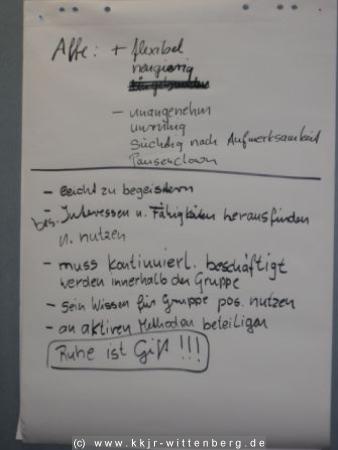 Affe: + flexibel
neugierig
- unangenehm
unruhig
Süchtig nach Aufmerksamkeit
Pausenclown
- leicht zu begeistern
- bes. Interessen u. Fähigkeiten herausfinden
u. nutzen
- muss kontinuierl. beschäftigt
werden innerhalb der Gruppe
- Sein Wissen für Gruppe pos. nutzen
- an aktiven Methoden beteiligen
Ruhe ist Gift !!!
(c) www.kkjr-wittenberg.de